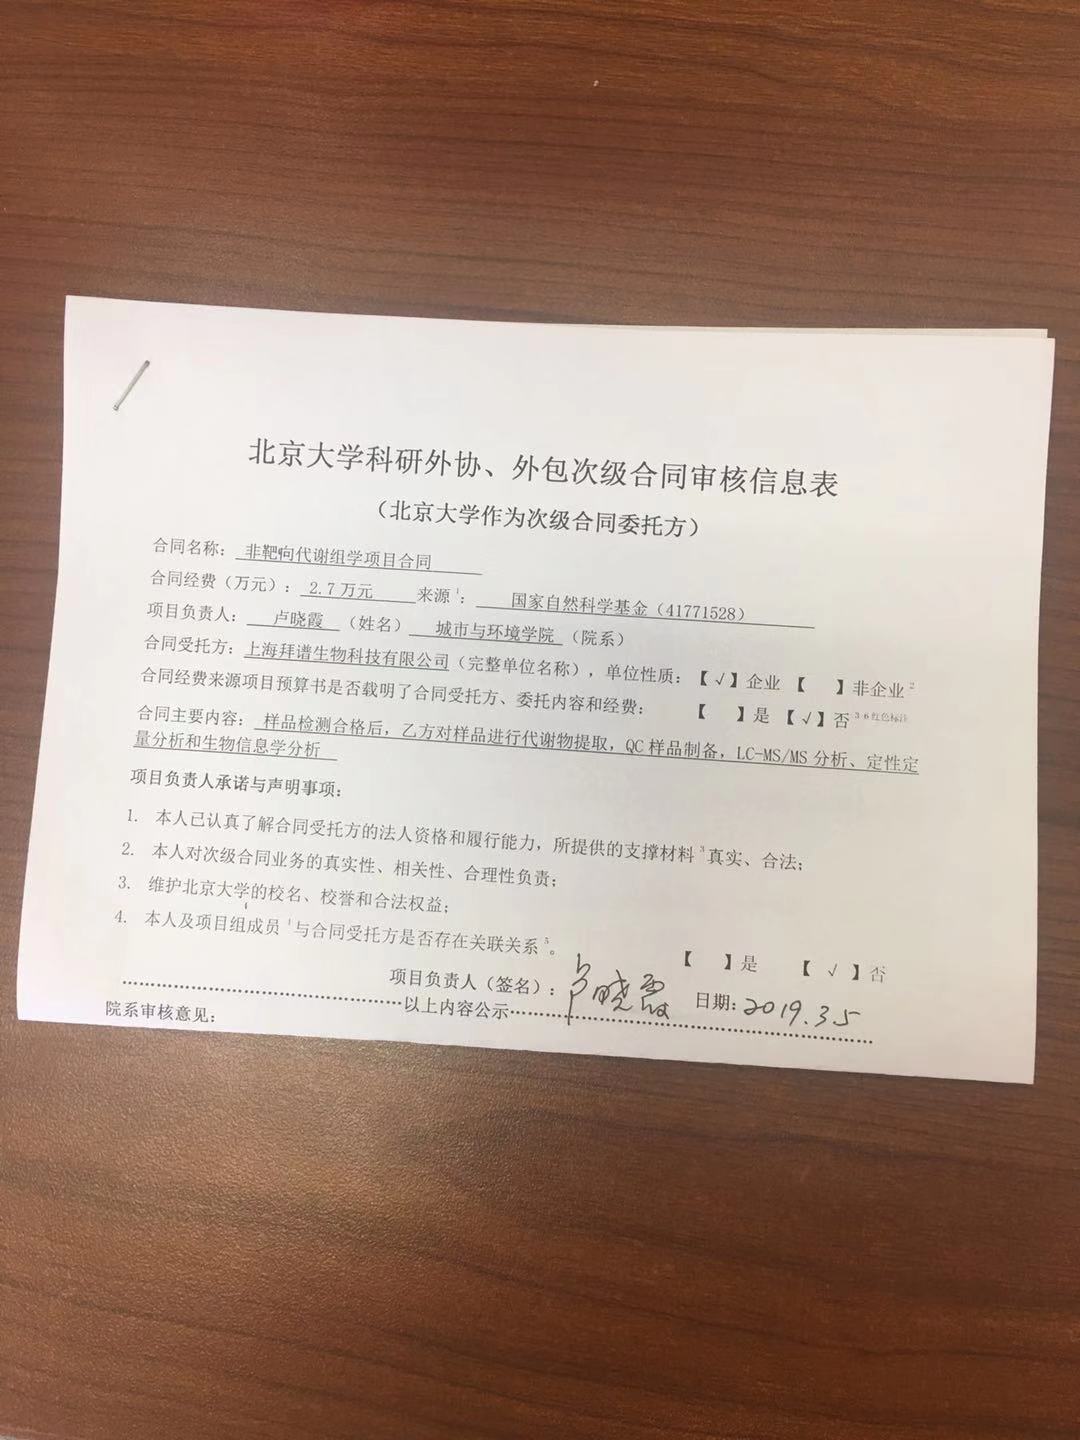 北京大学科研外协、外包次级合同审核信息表
（北京大学作为次级合同委托方）
合同名称：非靶向代谢组学项目合同
合同经费（万元）：2.7万元 来源¹：国家自然科学基金（41771528）
项目负责人：卢晓霞（姓名）城市与环境学院（院系）
合同受托方：上海拜谱生物科技有限公司（完整单位名称），单位性质：【√】企业 【 】非企业²
合同经费来源项目预算书是否载明了合同受托方、委托内容和经费： 【 】是 【√】否 ³⁶红色标注
合同主要内容：样品检测合格后，乙方对样品进行代谢物提取，QC样品制备，LC-MS/MS分析、定性定
量分析和生物信息学分析
项目负责人承诺与声明事项：
1. 本人已认真了解合同受托方的法人资格和履行能力，所提供的支撑材料³真实、合法；
2. 本人对次级合同业务的真实性、相关性、合理性负责；
3. 维护北京大学的校名、校誉和合法权益；
4. 本人及项目组成员⁴与合同受托方是否存在关联关系⁵。 【 】是 【√】否
项目负责人（签名）：卢晓霞 日期：2019.3.5
……………………………………以上内容公示……………………………………
院系审核意见：